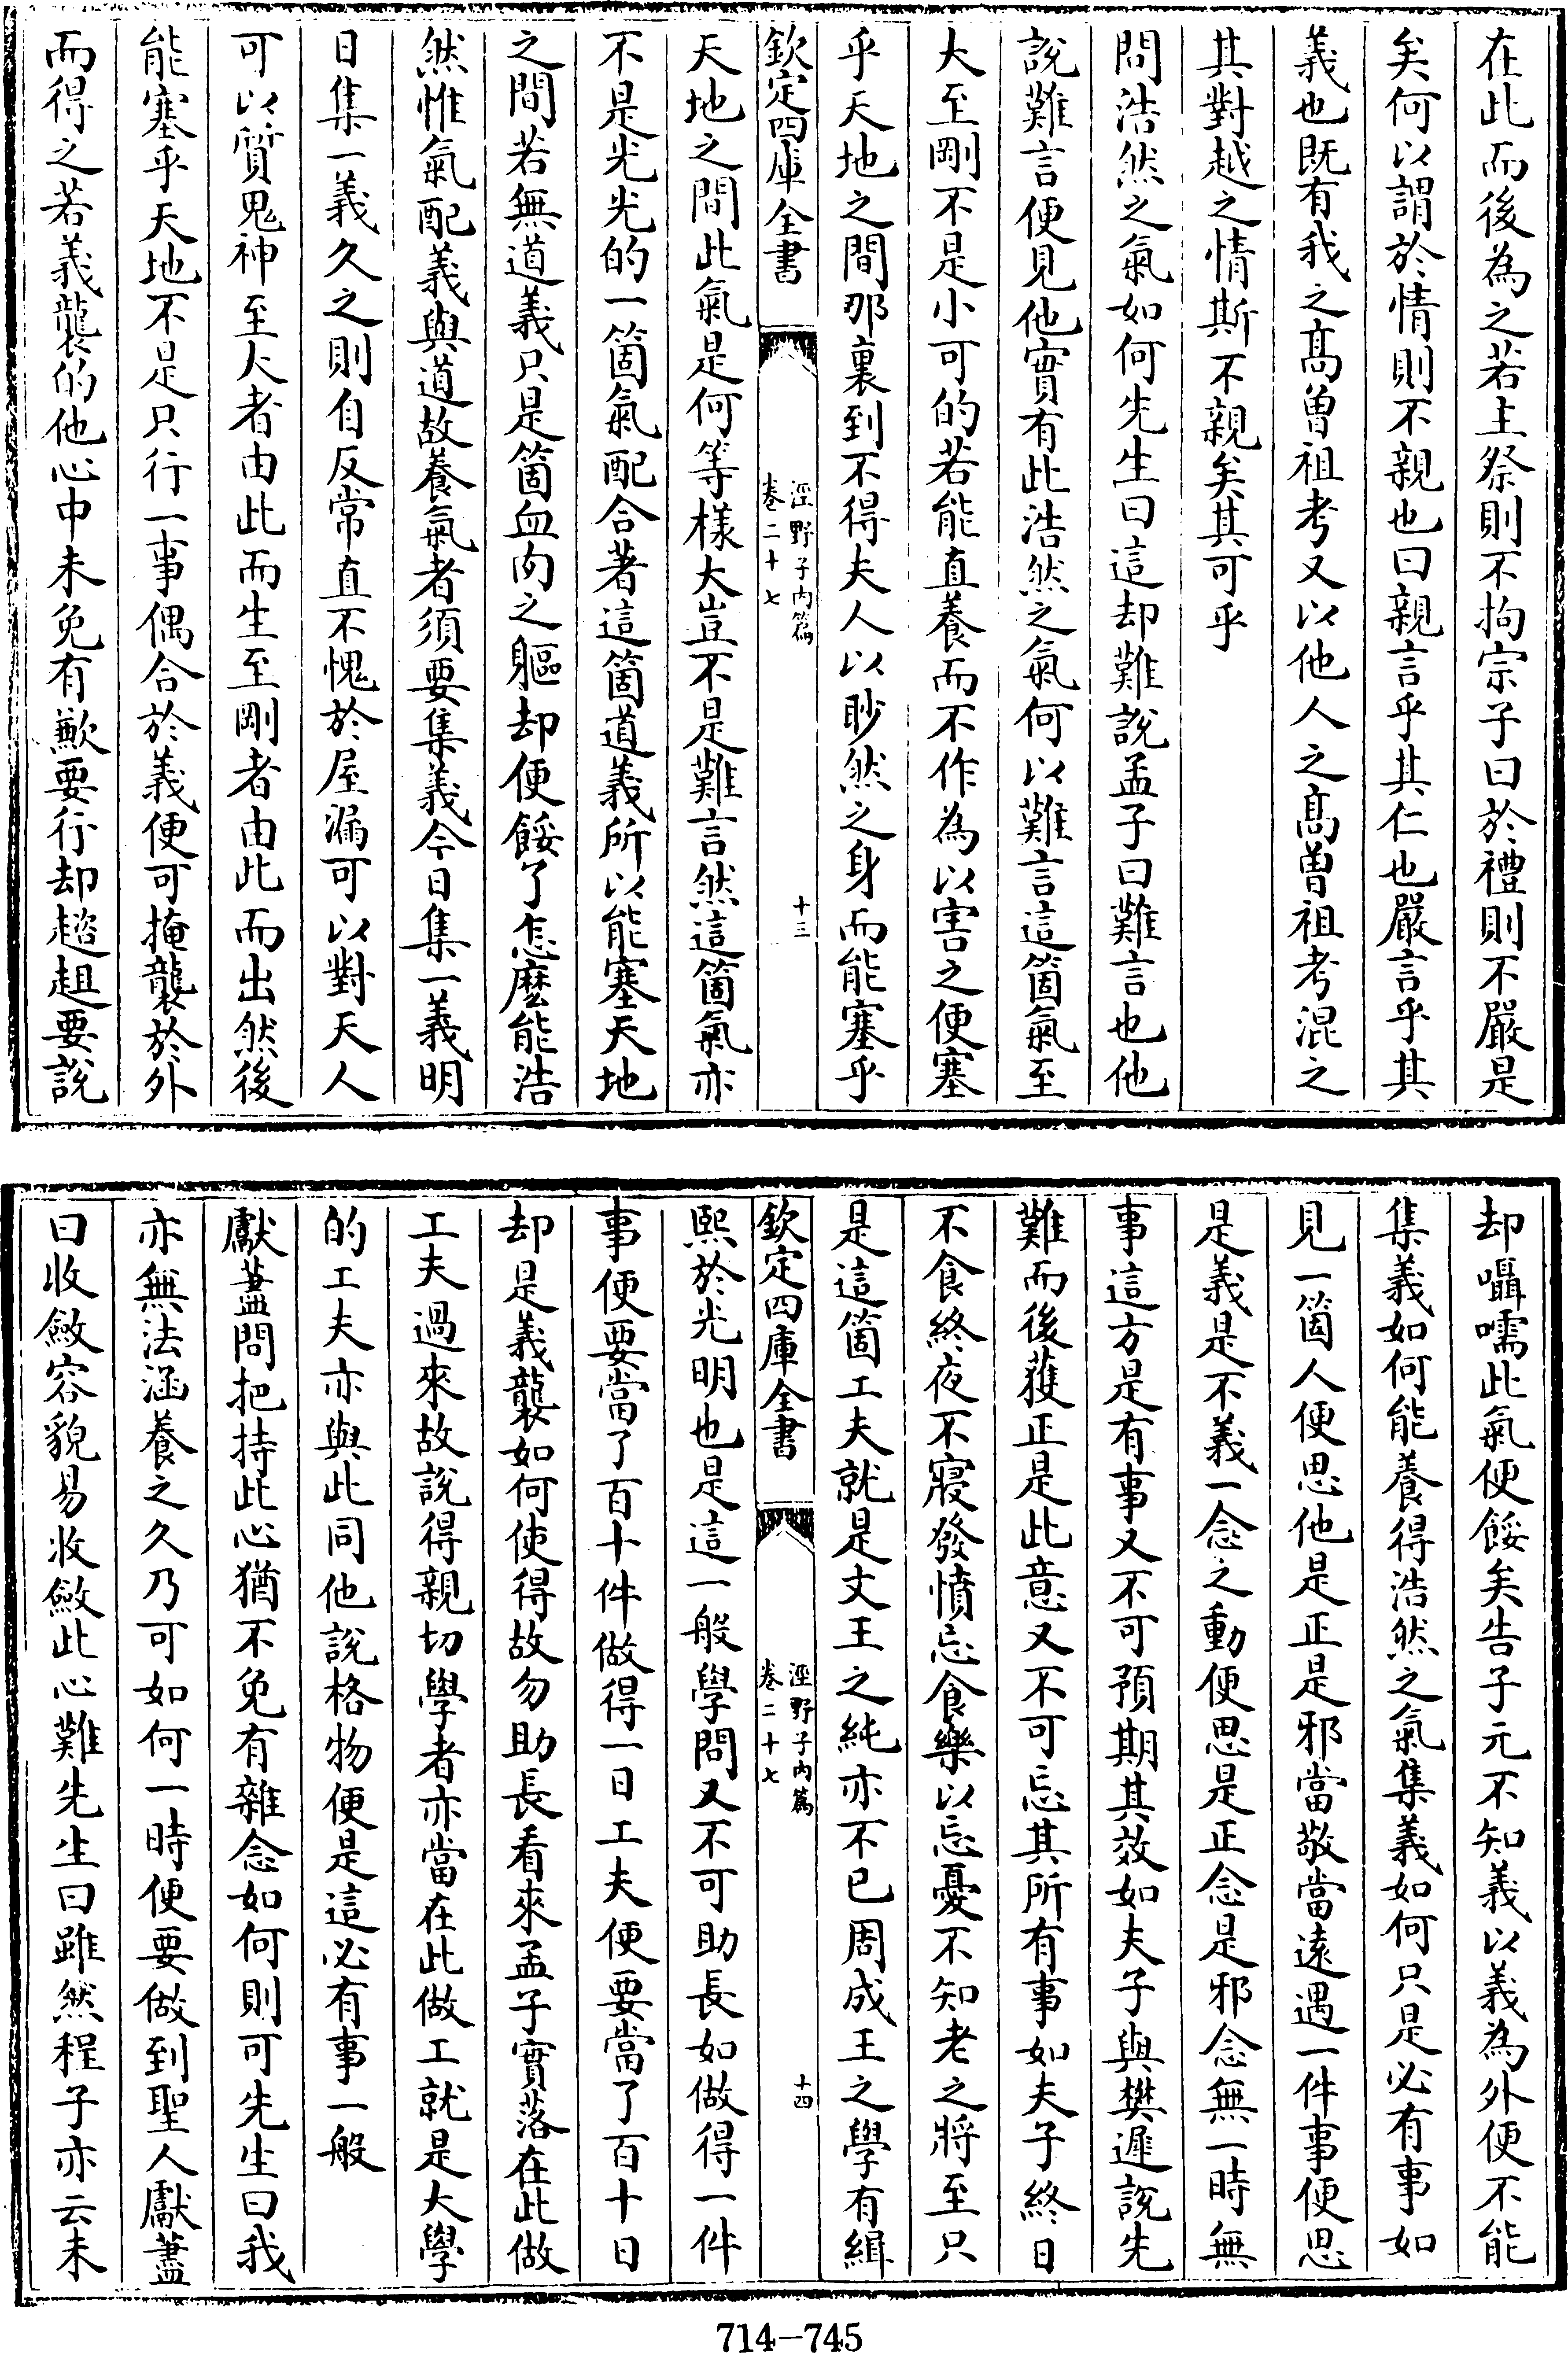 在此而後為之若主祭則不拘宗子曰於禮則不嚴是
矣何以謂於情則不親也曰親言乎其仁也嚴言乎其
義也既有我之高曾祖考又以他人之高曾祖考混之
其對越之情斯不親矣其可乎
問浩然之氣如何先生曰這却難說孟子曰難言也他
說難言便見他實有此浩然之氣何以難言這箇氣至
大至剛不是小可的若能直養而不作為以害之便塞
乎天地之間那裏到不得夫人以眇然之身而能塞乎
欽定四庫全書
涇野子內篇
卷二十七
十三
天地之間此氣是何等樣大豈不是難言然這箇氣亦
不是光光的一箇氣配合著這箇道義所以能塞天地
之間若無道義只是箇血肉之軀却便餒了怎麼能浩
然惟氣配義與道故養氣者須要集義今日集一義明
日集一義久之則自反常直不愧於屋漏可以對天人
可以質鬼神至大者由此而生至剛者由此而出然後
能塞乎天地不是只行一事偶合於義便可掩襲於外
而得之若義襲的他心中未免有歉要行却趑趄要說
却囁嚅此氣便餒矣告子元不知義以義為外便不能
集義如何能養得浩然之氣集義如何只是必有事如
見一箇人便思他是正是邪當敬當遠遇一件事便思
是義是不義一念之動便思是正念是邪念無一時無
事這方是有事又不可預期其效如夫子與樊遲說先
難而後獲正是此意又不可忘其所有事如夫子終日
不食終夜不寢發憤忘食樂以忘憂不知老之將至只
是這箇工夫就是文王之純亦不已周成王之學有緝
欽定四庫全書
涇野子內篇
卷二十七
十四
熙於光明也是這一般學問又不可助長如做得一件
事便要當了百十件做得一日工夫便要當了百十日
却是義襲如何使得故勿助長看來孟子實落在此做
工夫過來故說得親切學者亦當在此做工就是大學
的工夫亦與此同他說格物便是這必有事一般
獻蓋問把持此心猶不免有雜念如何則可先生曰我
亦無法涵養之久乃可如何一時便要做到聖人獻蓋
曰收斂容貌易收斂此心難先生曰雖然程子亦云未
714-745